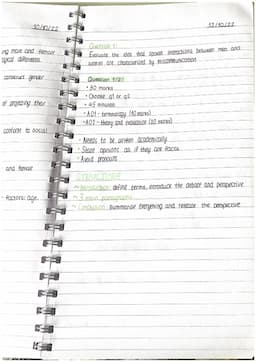 10/10/22
ing male and female
typical differences.
construct gender
of analysing their
contrast to social
and female
factors: age,
12/10/22
Question 1:
Evaluate the idea that social interactions between men and
women are characterised by miscommunication.
Question 1/2:
• 30 marks
• Choose q1 or q2
• 45 minutes
• AO1 - terminology (10 marks)
• AO2 - theory and evaluation (20 marks)
• Needs to be written academically
• State opinions as if they are facts
• Avoid pronouns
STRUCTURE
~ Introduction: define terms, introduce the debate and perspective
~ 3 main paragraphs
~ Conclusion: summarise everything and restate the perspective